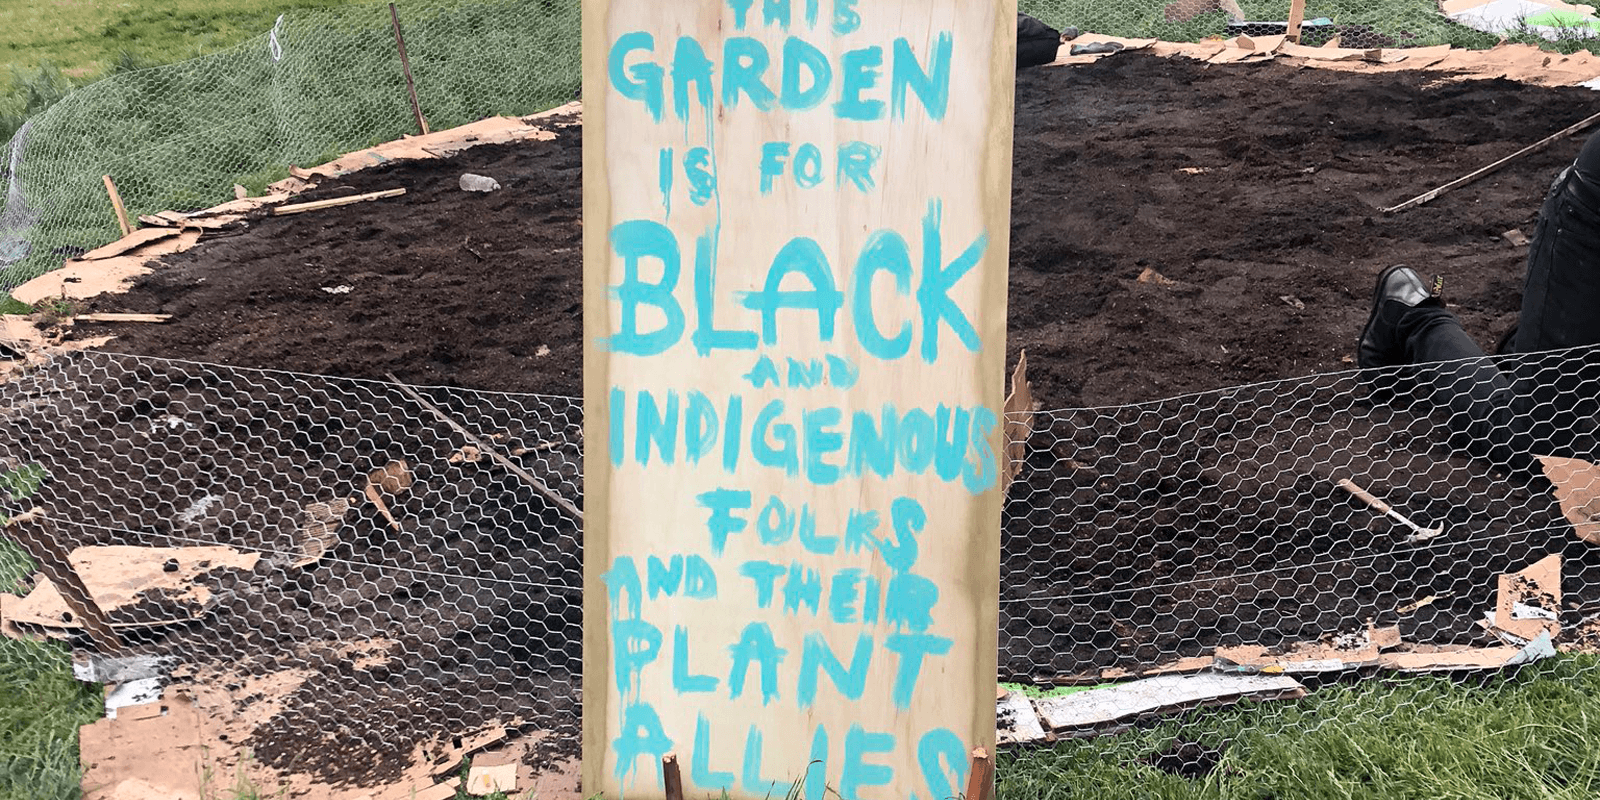 THIS
GARDEN
IS FOR
BLACK
AND
INDIGENOUS
FOLKS
AND THEIR
PLANT
ALLIES